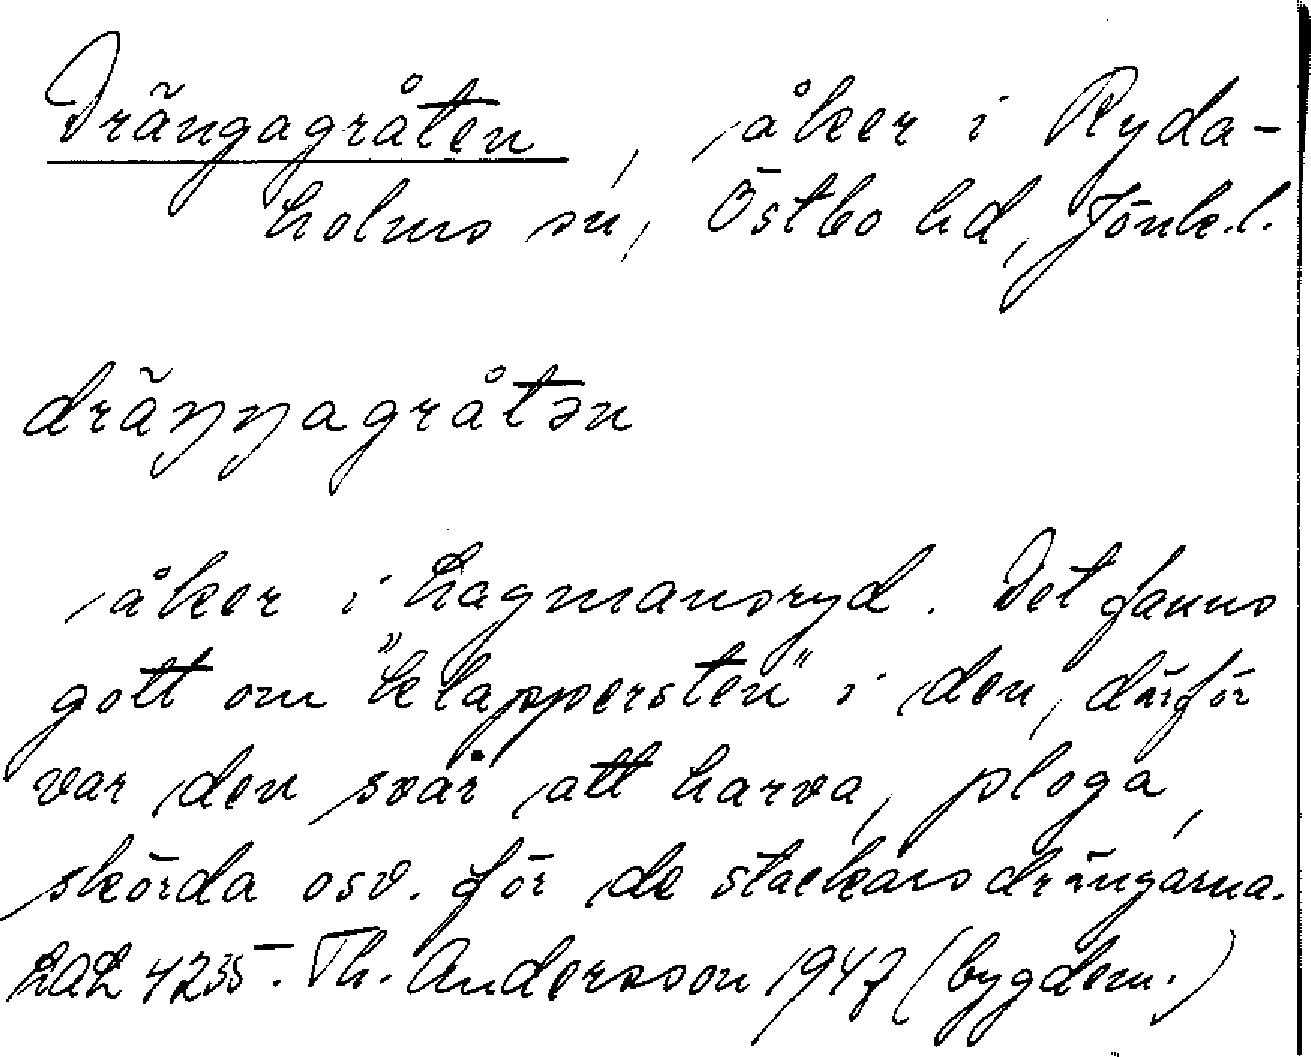 Drängagråten, åker i Ryda-
holms sn, Östbo hd, Jönk.l.
dräŋŋagråtən
åker i Hagmansryd. Det fanns
gott om "klappersten" i den, därför
var den svår att harva, ploga,
skörda osv. för de stackars drängarna.
LAL 4235. Th. Andersson 1947 (bygdem.)